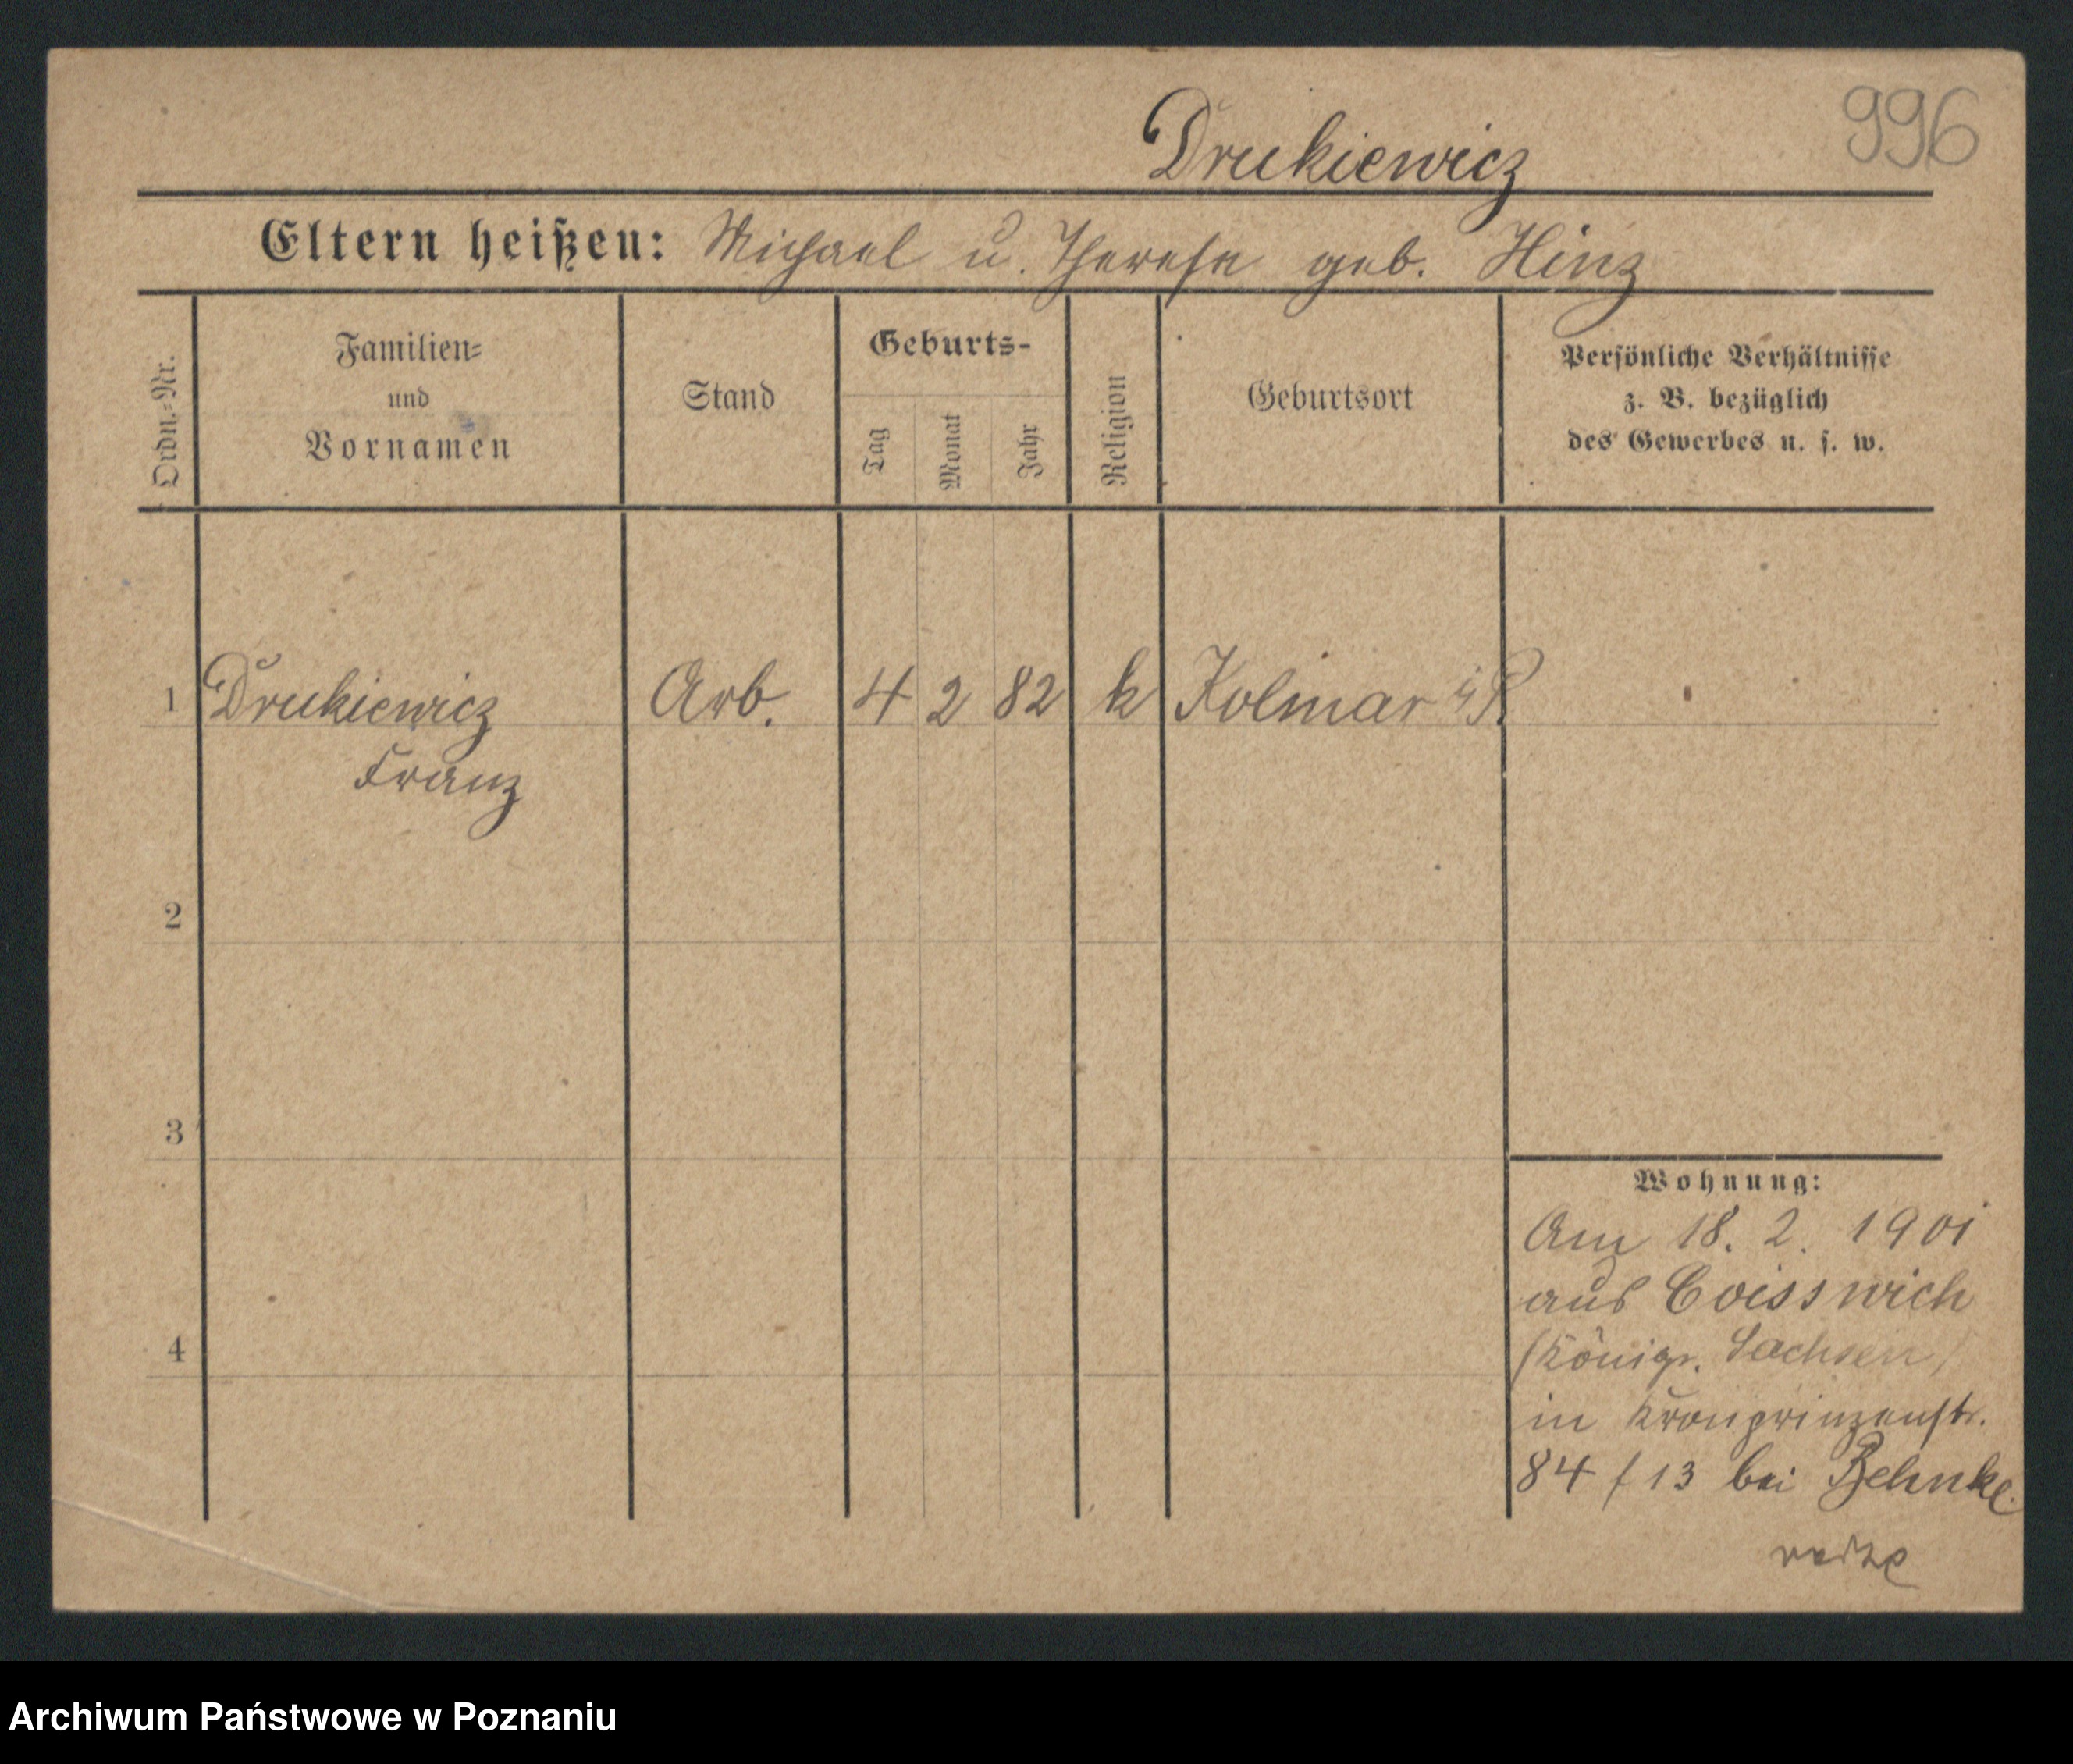 996
Drukiewicz
Eltern heißen: Michael u. Therese geb. Hinz
Ordn.=Nr.
Familien=
und
Vornamen
Stand
Geburts-
Tag
Monat
Jahr
Religion
Geburtsort
Persönliche Verhältnisse
z. B. bezüglich
des Gewerbes u. s. w.
1 Drukiewicz Arb. 4 2 82 k Kolmar i/P.
Franz
2
3
4
Wohnung:
Am 18. 2. 1901
aus Coisswich
(Königr. Sachsen)
in Kronprinzenstr.
84 / 13 bei Behnke.
Archiwum Państwowe w Poznaniu